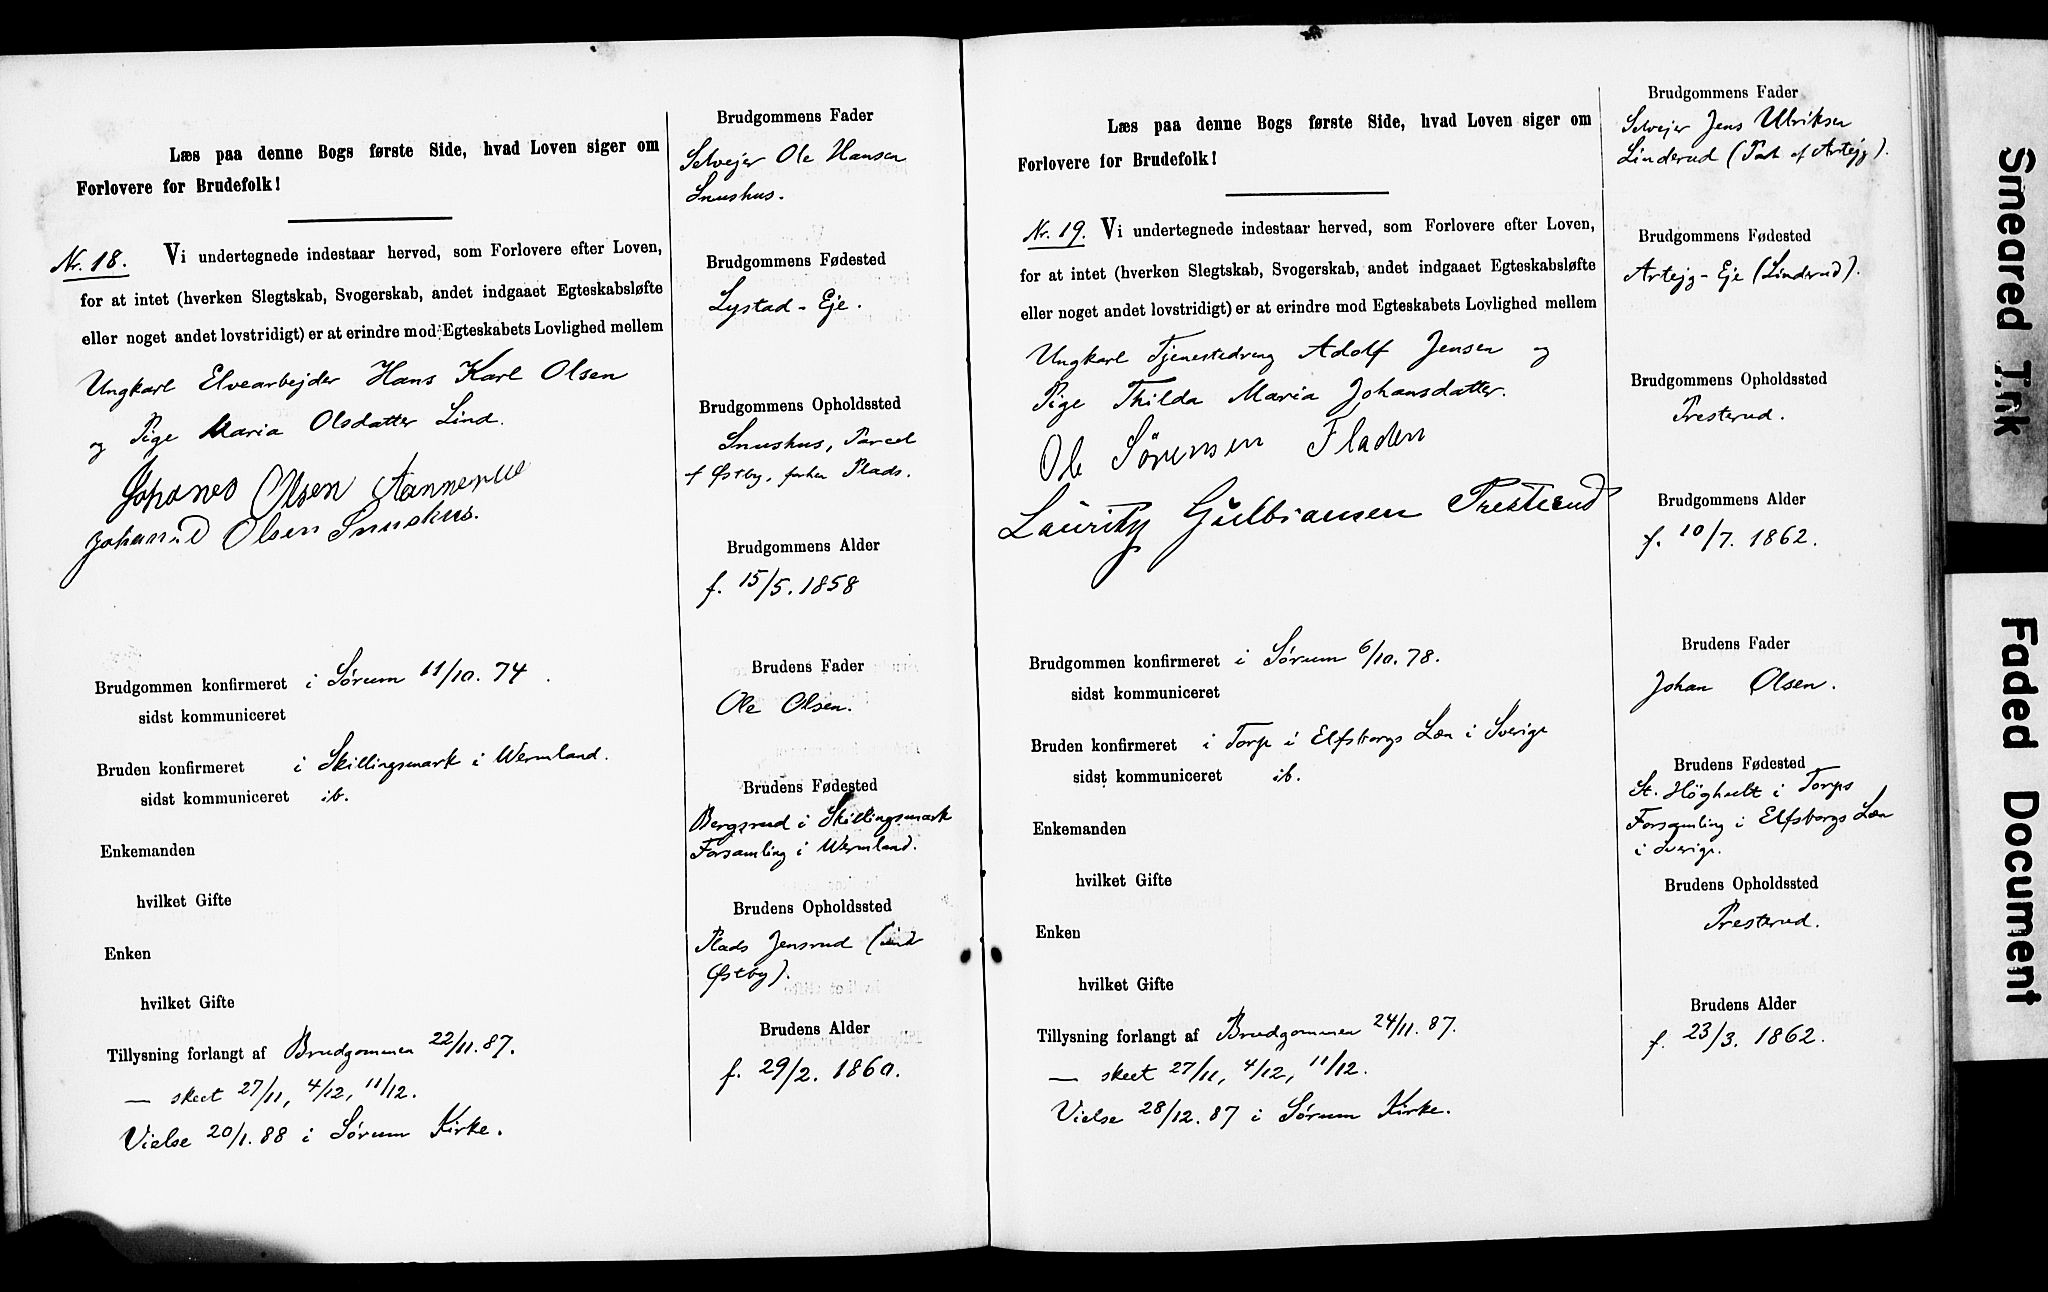 Læs paa denne Bogs første Side, hvad Loven siger om
Forlovere for Brudefolk!
Nr. 18. Vi undertegnede indestaar herved, som Forlovere efter Loven,
for at intet (hverken Slegtskab, Svogerskab, andet indgaaet Egteskabsløfte
eller noget andet lovstridigt) er at erindre mod Egteskabets Lovlighed mellem
Ungkarl Elvearbejder Hans Karl Olsen
og Pige Maria Olsdatter Lind.
Johanes Olsen
Olsen Snushus.
Brudgommen konfirmeret i Sørum 11/10. 74.
sidst kommuniceret
Bruden konfirmeret i Skillingsmark i Wermland.
sidst kommuniceret ib.
Enkemanden
hvilket Gifte
Enken
hvilket Gifte
Tillysning forlangt af Brudgommen 22/11. 87.
— skeet 27/11, 4/12, 11/12.
Vielse 20/1. 88 i Sørum Kirke.
Brudgommens Fader
Selvejer Ole Hansen
Snushus.
Brudgommens Fødested
Lystad - Eje.
Brudgommens Opholdssted
Snushus, Parcel
f Østby, forhen Plads.
Brudgommens Alder
f. 15/5. 1858
Brudens Fader
Ole Olsen.
Brudens Fødested
Bergsrud i Skillingsmark
Forsamling i Wermland.
Brudens Opholdssted
Plads Jensrud (und
Østby).
Brudens Alder
f. 29/2. 1860.
Læs paa denne Bogs første Side, hvad Loven siger om
Forlovere for Brudefolk!
Nr. 19. Vi undertegnede indestaar herved, som Forlovere efter Loven,
for at intet (hverken Slegtskab, Svogerskab, andet indgaaet Egteskabsløfte
eller noget andet lovstridigt) er at erindre mod Egteskabets Lovlighed mellem
Ungkarl Tjenestedreng Adolf Jensen og
Pige Thilda Maria Johansdatter.
Ole Sørensen Fladen
Lauritz Gulbransen Presterud
Brudgommen konfirmeret i Sørum 6/10. 78.
sidst kommuniceret
Bruden konfirmeret i Torp i Elfsborgs Læn i Sverige
sidst kommuniceret ib.
Enkemanden
hvilket Gifte
Enken
hvilket Gifte
Tillysning forlangt af Brudgommen 24/11. 87.
— skeet 27/11, 4/12, 11/12.
Vielse 28/12. 87 i Sørum Kirke.
Brudgommens Fader
Selvejer Jens Ulriksen
Linderud (Part af Artejg).
Brudgommens Fødested
Artejg - Eje (Linderud).
Brudgommens Opholdssted
Presterud.
Brudgommens Alder
f. 10/7. 1862.
Brudens Fader
Johan Olsen.
Brudens Fødested
St. Höghult i Torps
Forsamling i Elfsborgs Læn
i Sverige.
Brudens Opholdssted
Presterud.
Brudens Alder
f. 23/3. 1862.
Smeared Ink
Faded Document